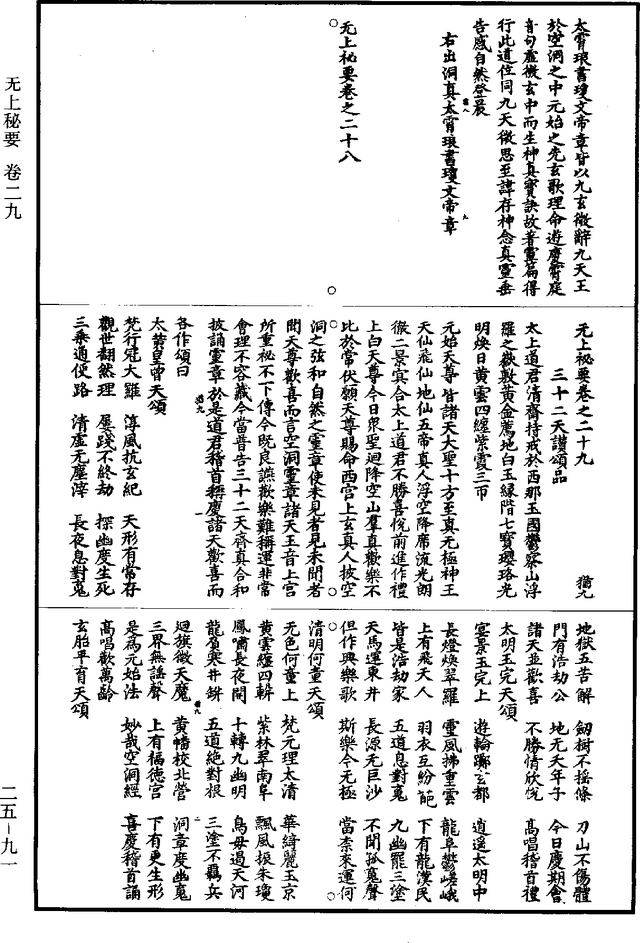 太霄琅書瓊文帝章皆以九玄微辭九天王
於空洞之中元始之先玄歌理命遊慶霄庭
音句虛微玄中而生神真寶訣故著靈篇得
行此道位同九天微思至諱存神念真靈垂
告感自然登晨
右出洞真太霄琅書瓊文帝章
无上祕要卷之二十八
无上祕要卷之二十九
三十二天讚頌品
太上道君清齋持戒於西那玉國鬱察山浮
羅之嶽敷黃金薦地白玉緣階七寶瓔珞光
明煥日黃雲四纏紫霞三帀
元始天尊皆諸天大聖十方至真无極神王
天仙飛仙地仙五帝真人浮空降席流光朗
徹二景宾合太上道君不勝喜悅前進作禮
上白天尊今日衆聖迴降空山羣真歡樂不
比於常伏願天尊賜命西宮上玄真人披空
洞之弦和自然之靈章使未見者見未聞者
聞天尊歡喜而言空洞靈章諸天王音上宮
所重祕不下傳今既良讌歡樂難稱運非常
會理不容藏今當普告三十二天齊真合和
披誦靈章於是道君稽首稱慶諸天歡喜而
各作頌曰
太黃皇曾天頌
梵行冠大難 淳風抗玄紀 天形有常存
觀世翻然理 屢踐不終劫 探幽度生死
三乘通便路 清虛无塵滓 長夜息對䰟
地獄五苦解 劒樹不搖條 刀山不傷體
門有浩劫公 地无夭年子 今日慶期會
諸天並歡喜 不勝情欣悅 高唱稽首禮
太明玉完天頌
宴景玉完上 遊輪躑玄都 逍遥太明中
長燈煥翠羅 靈風拂重雲 龍阜鬱嵯峨
上有飛天人 羽衣互紛葩 下有龍漢民
皆是浩劫家 五道息對䰟 九幽罷三塗
天馬運東井 長源无巨沙 不聞孤䰟聲
但作興樂歌 斯樂今无極 當柰來運何
清明何童天頌
无色何童上 梵元理太清 華綺麗玉京
黃雲纏四軿 紫林翠南阜 飄風振朱瓊
鳳嘯長夜開 十轉九幽明 鳥母過天河
龍負寒井鉼 五道絶對根 三塗不羈兵
迴旗徵天魔 黃幡校北營 洞章度幽䰟
三界無謡聲 上有福德宮 下有更生形
是為元始法 妙哉空洞經 喜慶稽首誦
高唱歡萬齡
玄胎平育天頌
无上秘要 卷二九
二五－九一